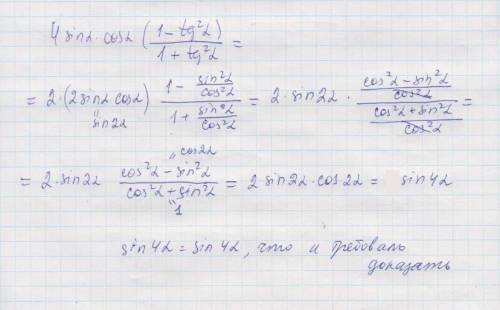 4 sinα·cosα ( (1 − tg²α) / (1 + tg²α) ) =
= 2·(2 sinα cosα) · (1 − sin²α/cos²α) / (1 + sin²α/cos²α) = 2·sin2α · ((cos²α − sin²α)/cos²α) / ((cos²α + sin²α)/cos²α) =
" sin2α
" cos2α
= 2·sin2α (cos²α − sin²α) / (cos²α + sin²α) = 2 sin2α·cos2α = sin4α
" 1
sin4α = sin4α, что и требовалось
доказать